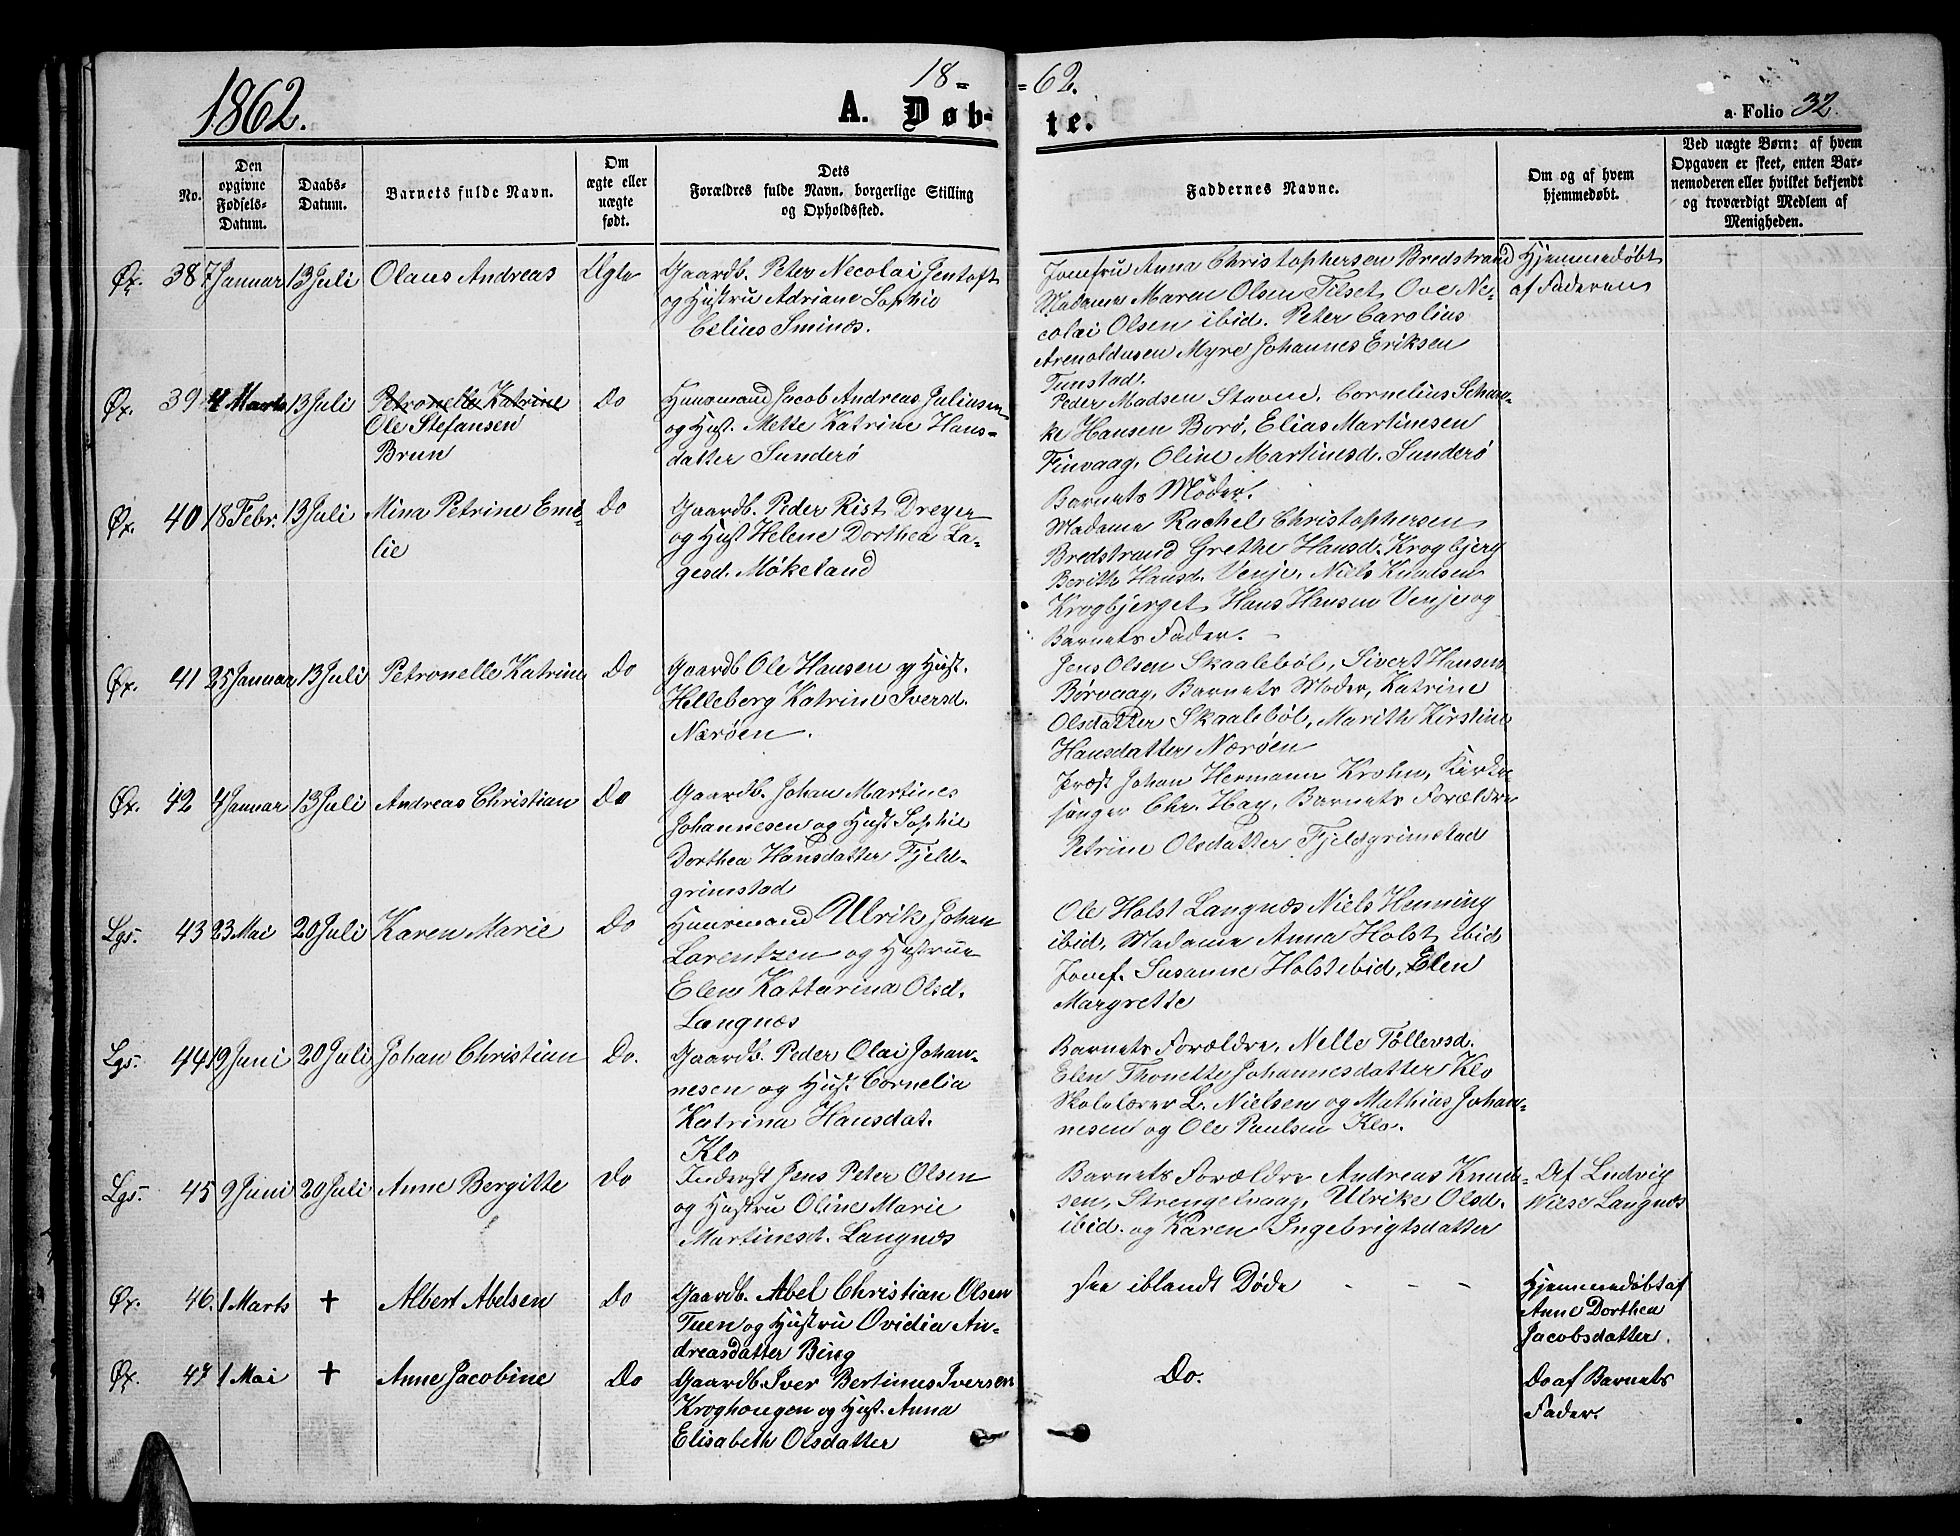 1862.
18 = = 62.
A. Døb- te.
a. Folio 32.
No.
Den opgivne Fødsels-Datum.
Daabs-Datum.
Barnets fulde Navn.
Om ægte eller uægte født.
Dets Forældres fulde Navn, borgerlige Stilling og Opholdssted.
Faddernes Navne.
Om og af hvem hjemmedøbt.
Ved uægte Børn: af hvem Opgaven er skeet, enten Barnemoderen eller hvilket bekjendt og troværdigt Medlem af Menigheden.
Øx. 38 7 Januar 13 Juli Olaus Andreas Ægte
Gaardb. Peter Necolai Jentoft
og Hustru Adriane Sophie
Celius Sminæs.
Jomfru Anna Christophersen Bredstrand
Madame Maren Olsen Tilset, Ove Ne-
colai Olsen ibid. Peter Carolius
Arenoldusen Myre Johannes Eriksen
Tunstad.
Hjemmedøbt
af Faderen
Øx. 39 4 Marts 13 Juli Petronelle Katrine
Ole Stefansen
Brun
Do
Huusmand Jacob Andreas Juliusen
og Hust. Mette Katrine Hans-
datter Sunderö
Peder Madsen Staven, Cornelius Schan-
ke Hansen Borö, Elias Martinesen
Finvaag, Oline Martinesd. Sunderö
Barnets Moder.
Øx. 40 18 Febr. 13 Juli Mina Petrine Eme-
lie
Do
Gaardb. Peder Rist Dreyer
og Hust Helene Dorthea La-
gesd. Møkeland
Madame Rachel Christophersen
Bredstrand Grethe Hansd. Krogbjerg
Berith Hansd. Venje, Niels Knudsen
Krogbjerget, Hans Hansen Venje og
Barnets Fader.
Øx. 41 25 Januar 13 Juli Petronelle Katrine Do
Gaardb Ole Hansen og Hust.
Helleborg Katrine Iversd.
Nærøen.
Jens Olsen Skaaleböl, Sivert Hansen
Børvaag, Barnets Moder, Katrine
Olsdatter Skaaleböl, Marith Kirstine
Hansdatter Nærøen
Øx. 42 4 Januar 13 Juli Andreas Christian Do
Gaardb. Johan Martines
Johannesen og Hust Sophie
Dorthea Hansdatter Fjeld-
grimstad
Præst Johan Hermann Krohn, Kirke
sanger Chr. Hay, Barnets Forældre
Petrine Olsdatter Fjeldgrimstad
Lgs. 43 23 Mai 20 Juli Karen Marie Do
Huusmand Ulrik Johan
Lorentzen og Hustrue
Elen Kattarina Olsd.
Langnæs
Ole Holst Langnæs Niels Henning
ibid, Madame Anna Holst ibid
Jomf. Susanne Holst ibid, Elen
Margrette
Lgs. 44 19 Juni 20 Juli Johan Christian Do.
Gaardb. Peder Olai Johan-
nesen og Hust. Cornelia
Katrina Hansdat.
Klo
Barnets Forældre, Nelle Tollersd.
Elen Thonette Johannesdatter Klo
Skolelærer L. Nielsen og Mathias Johan-
nesen og Ole Paulsen Klo.
Lgs. 45 9 Juni 20 Juli Anne Bergitte Do
Inderst Jens Peter Olsen
og Hustru Oline Marie
Martinesd. Langnæs
Barnets Forældre Andreas Knud-
sen, Strengelvaag, Ulrike Olsd.
ibid. og Karen Ingebrigtsdatter
Af Ludvig
Wiese Langnæs
Øx. 46. 1 Marts + Albert Abelsen Do
Gaardb. Abel Christian Olsen
Tuen og Hustru Ovidia An-
dreasdatter Bing
see iblandt Døde - - -
Hjemmedøbt af
Anne Dorthea
Jacobsdatter.
Øx. 47 1 Mai + Anne Jacobine Do
Gaardb. Iver Bertinus Iversen
Kroghougen og Hust. Anna
Elisabeth Olsdatter
Do.
Do af Barnets
Fader.